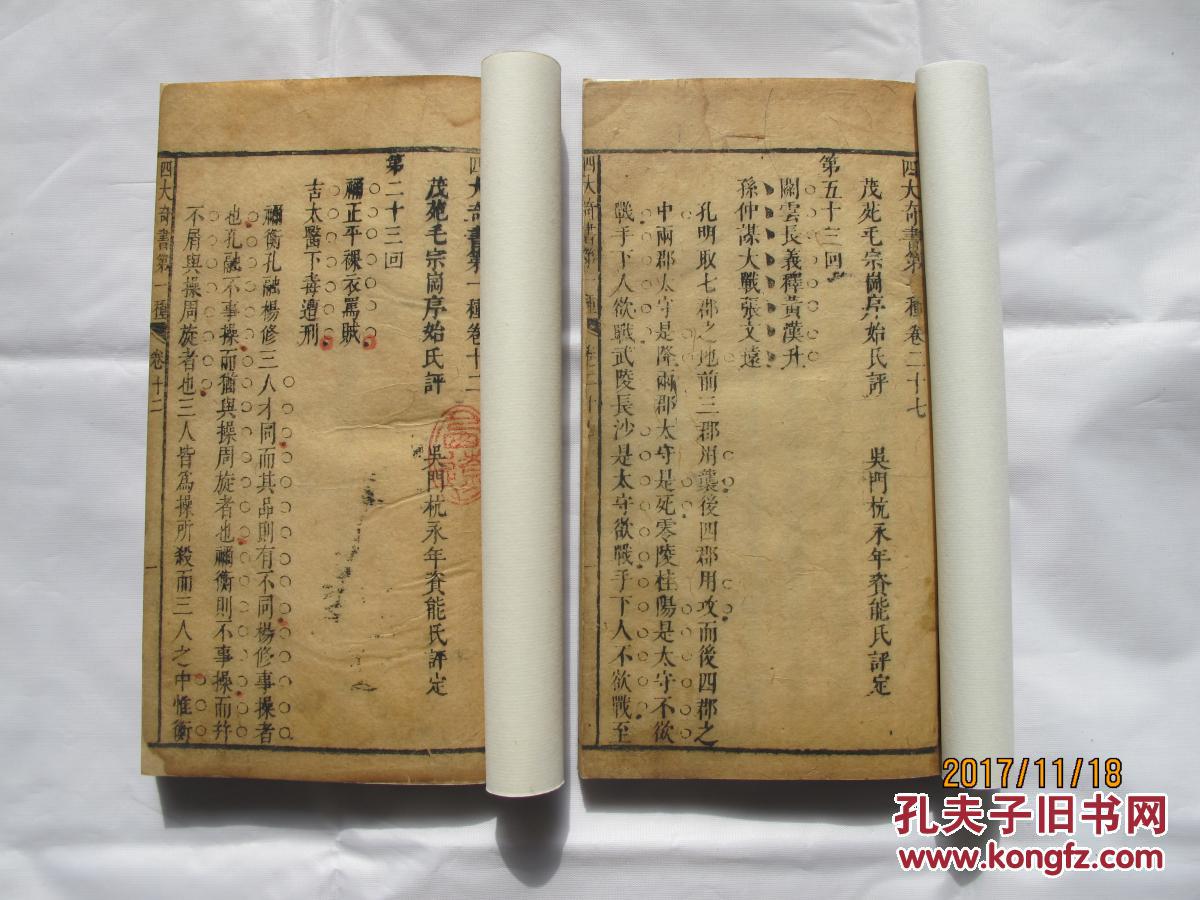 四大奇書第一種卷二十七
茂苑毛宗崗序始氏評 吳門杭永年資能氏評定
第五十三回
關雲長義釋黃漢升
孫仲謀大戰張文遠
孔明取七郡之地前三郡用襲後四郡用攻而後四郡之
中兩郡太守是降兩郡太守是死零陵桂陽是太守不欲
戰手下人欲戰武陵長沙是太守欲戰手下人不欲戰至
四大奇書第 種 卷二十
四大奇書第一種卷十二
茂苑毛宗崗序始氏評 吳門杭永年資能氏評定
第二十三回
禰正平裸衣罵賊
吉太醫下毒遭刑
禰衡孔融楊修三人才同而其品則有不同楊修事操者
也孔融不事操而猶與操周旋者也禰衡則不事操而幷
不屑與操周旋者也三人皆爲操所殺而三人之中惟衡
四大奇書第一種 卷十二 一
2017/11/18
孔夫子旧书网
www.kongfz.com